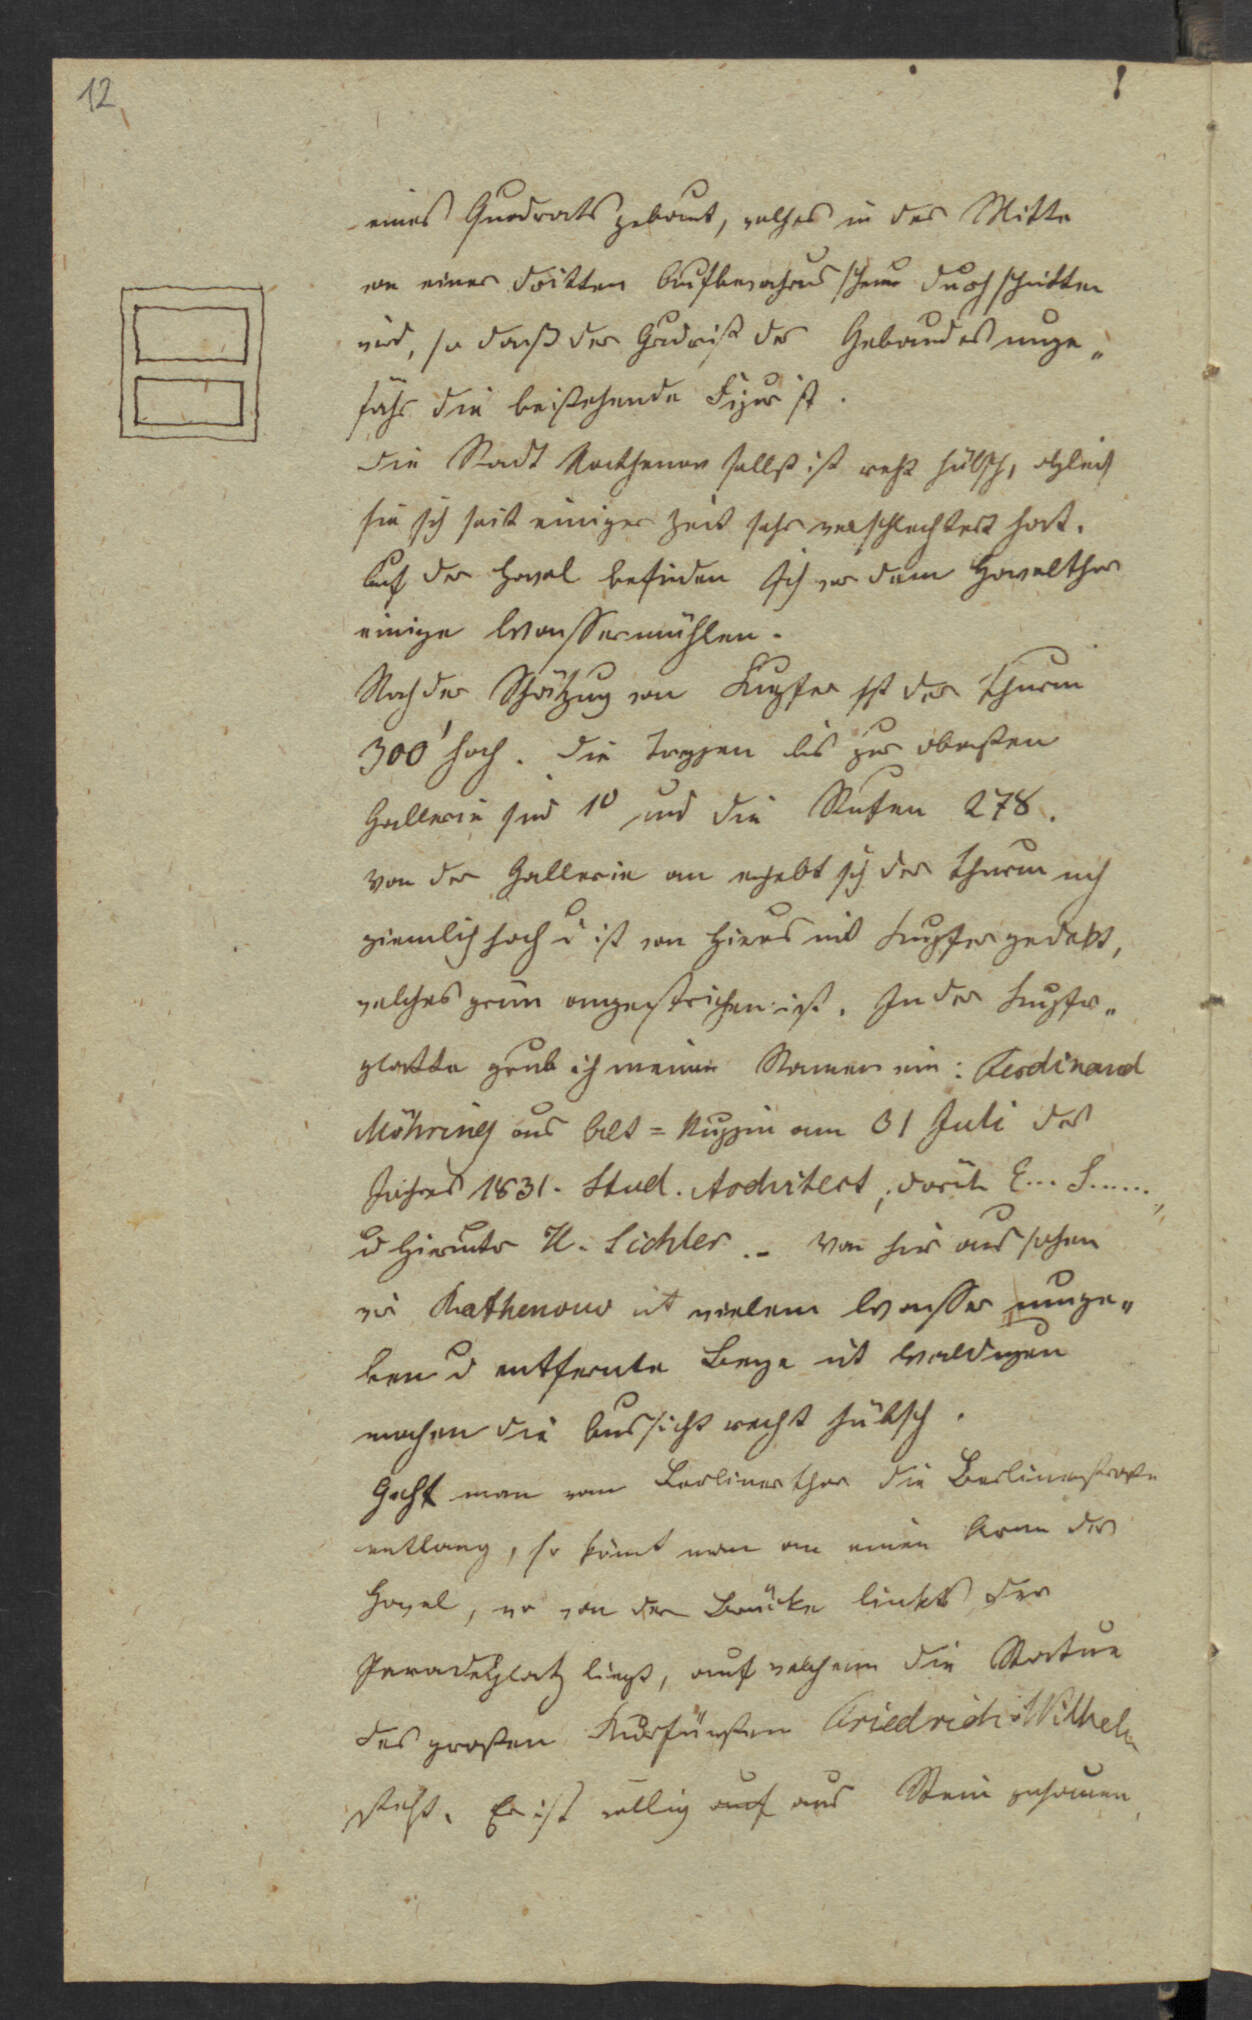 12
eines Quadrats gebaut, welches in der Mitte
von einer dritten durchschnitten
wird, so daß der Grdriß des Gebaudes unge„
fähr die beistehende Figur ist.
Die Stadt Rathenow selbst ist recht hübsch, obgleich
sie sich seit einiger Zeit sehr verschlechtert hat.
Auf der Havel befinden sich vor dem Havelthor
einige Wassermühlen.
Nach der Schätzung von Kupfer ist der Thurm
300' hoch. Die Treppen bis zur obersten
Gallerie sind 10 und die Stufen 278.
Von der Gallerie an erhebt sich der Thurm noch
ziemlich hoch u ist von hieraus mit Kupfer gedekt,
welches grün angestrichen ist. In der Kupfer„
platte grub ich meinen Namen ein: Ferdinand
Möhring aus Alt=Ruppin am 31 Juli des
Jahres 1831. Stud. Architect, darüb E... S......,
u hierunter H. Lichler. – Von hier aus sahen
wir Rathenow mit vielem Wasser umge„
ben u entfernte Berge mit Waldungen
machen die Aussicht recht hübsch.
Geht man vom Berlinerthor die Berlinerstraße
entlang, so kömt man an einen Arm der
Havel, wo von der Brücke links der
Paradeplatz liegt, auf welchem die Statue
des großen Kurfürsten Friedrich Wilhelm
steht. Er ist völlig auf aus Stein gehauen,